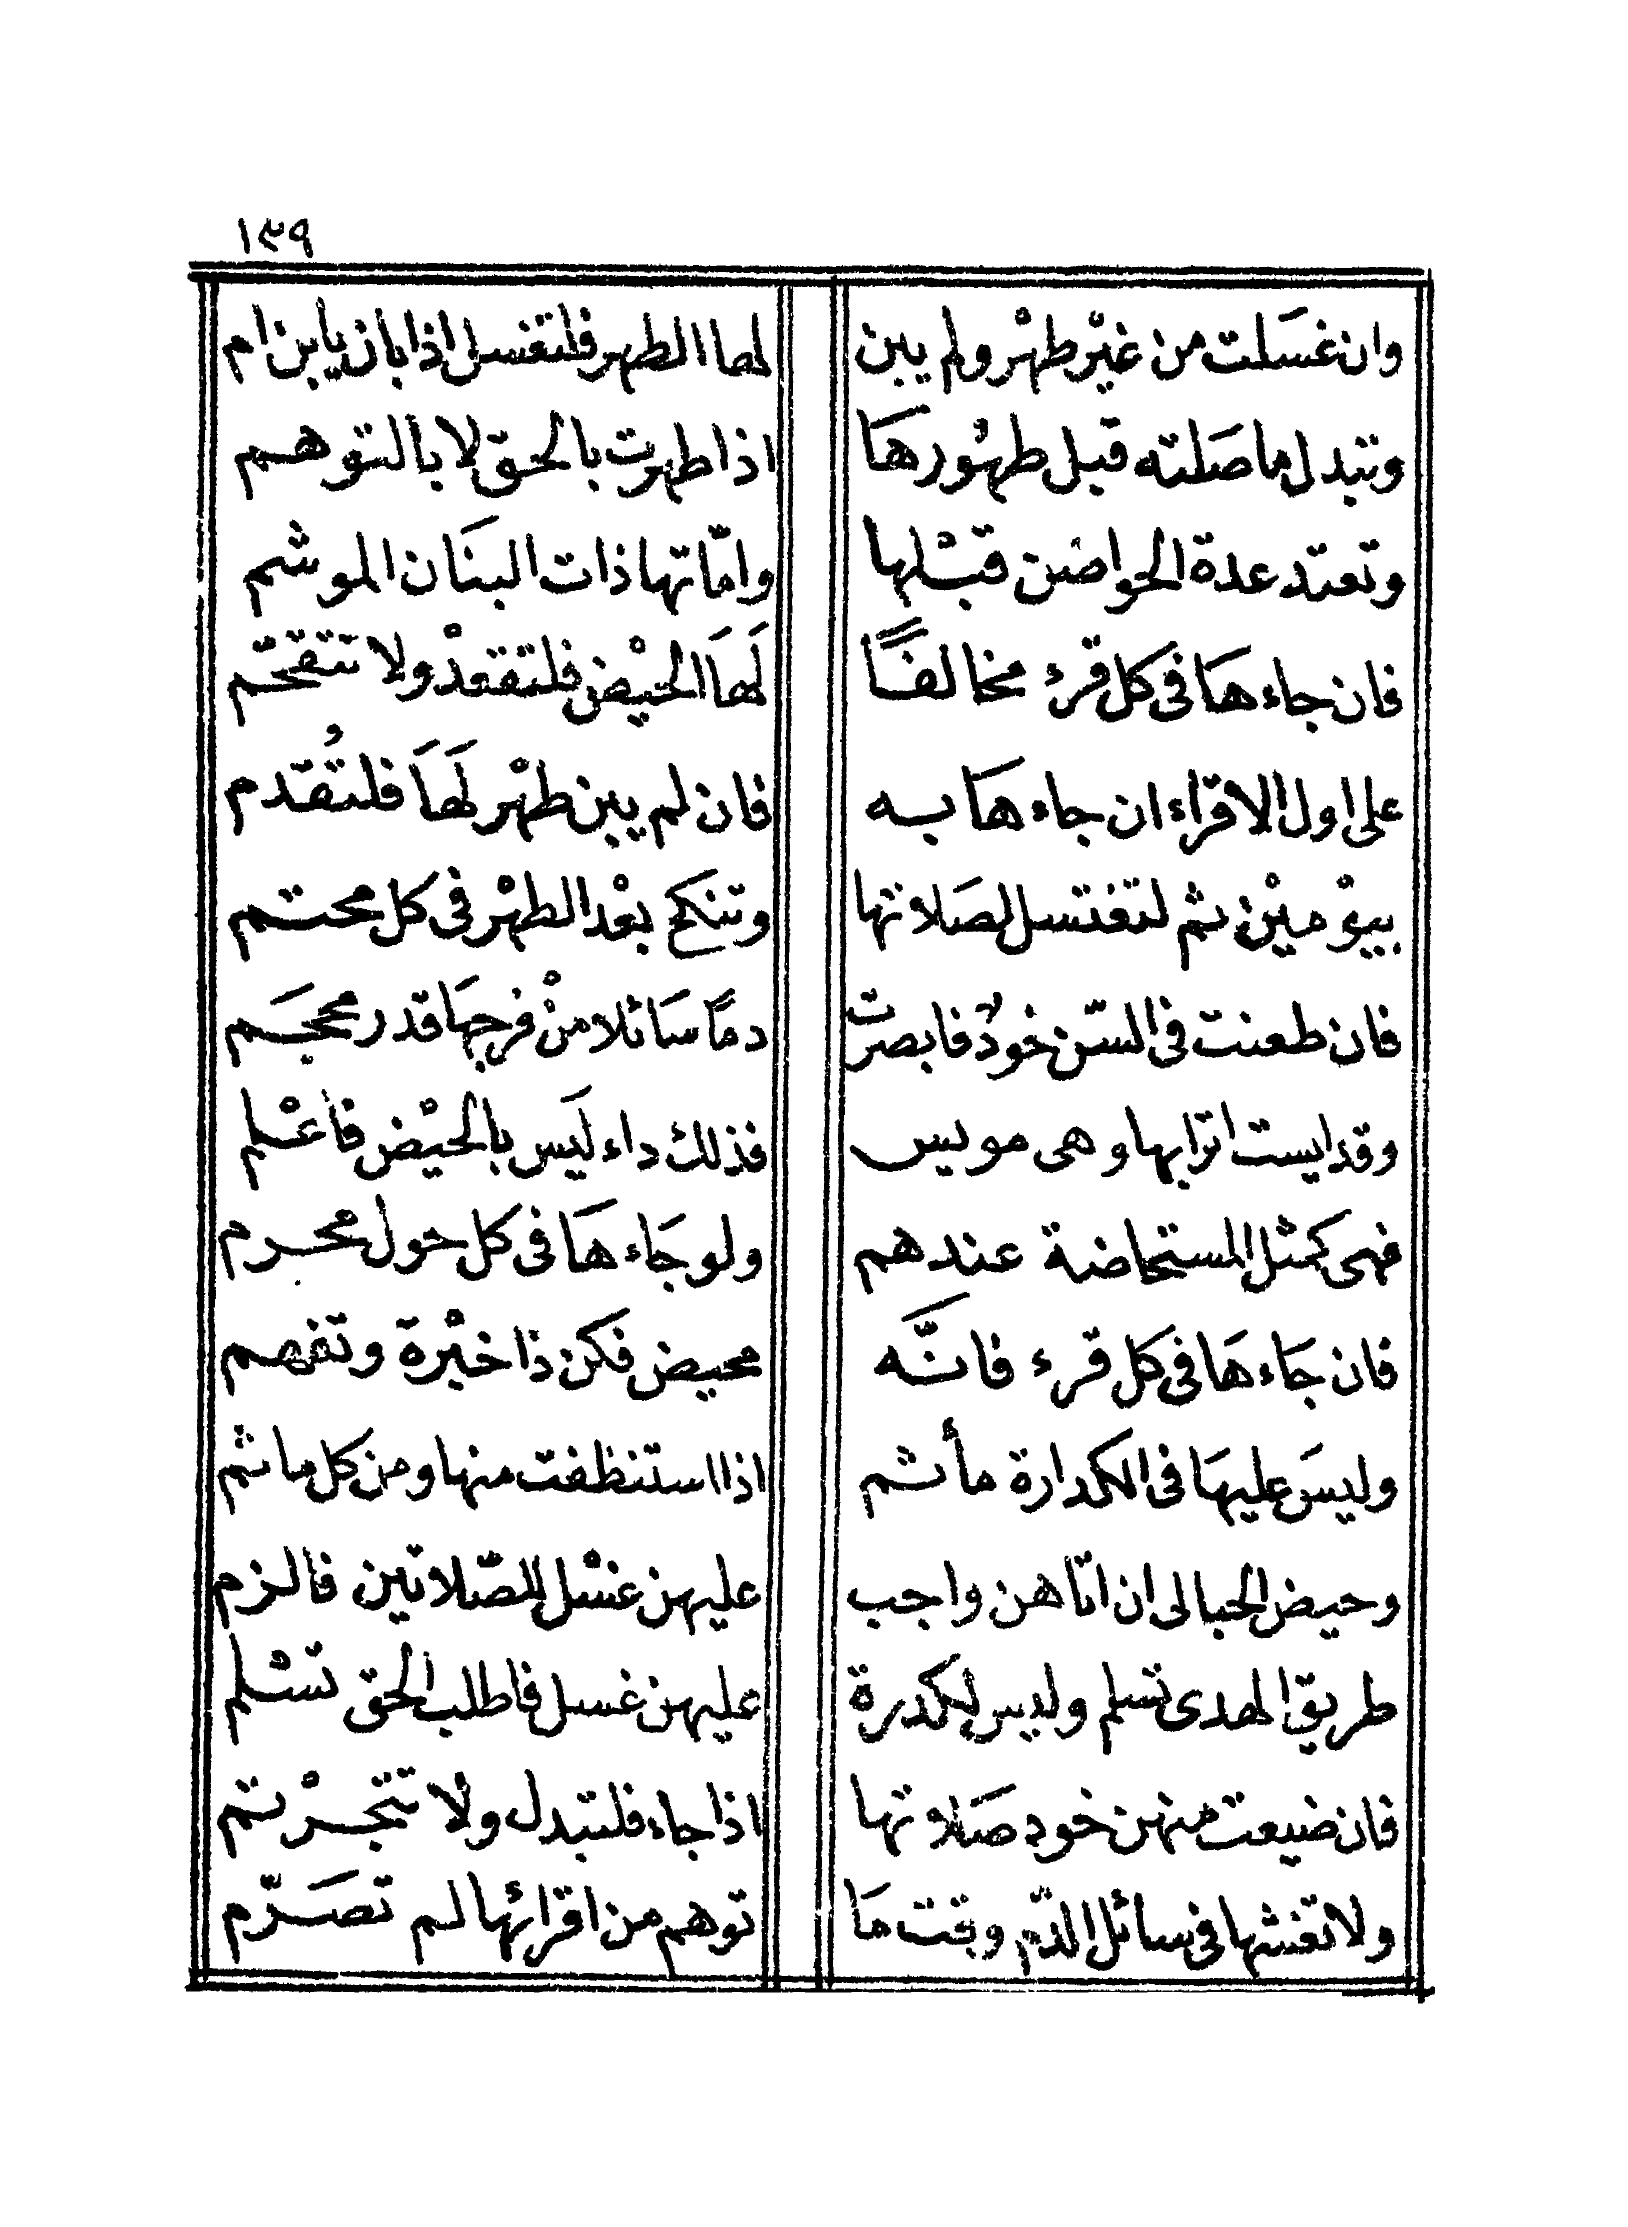 ١٣٩
وان غسَلت من غيْر طهْر ولم يبين لها الطهر فلتغتسل اذا بان يا بن ام
وتبدل ما صَلته قبل طهُورهَا اذا طهرت بالحق لا بالتوهم
وتعتد عدة الحواضن قبْلها وامّاتها ذات البنَان الموشم
فان جاءهَا فى كل قرء مخالفًا لهَا الحيْض فلتقعدْ ولا تتقحّم
على اول الاقراء ان جاءهَا به فان لم يبين طهْر لهَا فلتُقدم
بيوْمين ثم لتغتسل لصَلاتها وتنكح بعْد الطهْر فى كل محتم
فان طعنت فى السّن خودٌ فابصرت دمًا سَائلا منْ فرجهَا قدر محجَم
وقد ايست اترابها وهى مويس فذلك داء لَيس بالحيْض فاعْلم
فهى كمثل المستحاضة عندهم ولو جَاءهَا فى كل حول محرم
فان جَاءهَا فى كل قرء فانَّه محيض فكن ذا خبْرة وتفهم
وليسَ عليهَا فى الكدارة مأثم اذا استنظفت منها ومن كل ماثم
وحيض الحبالى ان اتّاهن واجب عليهن غسْل للصّلاتين فالزم
طريق الهدى تسلم وليس لكدرة عليهن غسل فاطلب الحق تسْلم
فان ضيعت منهن خود صَلاتها اذا جاء فلتبدل ولا تتجرْثم
ولا تغشها فى سائل الدّم وقت مَا توهم من اقرائها لم تصَرّم